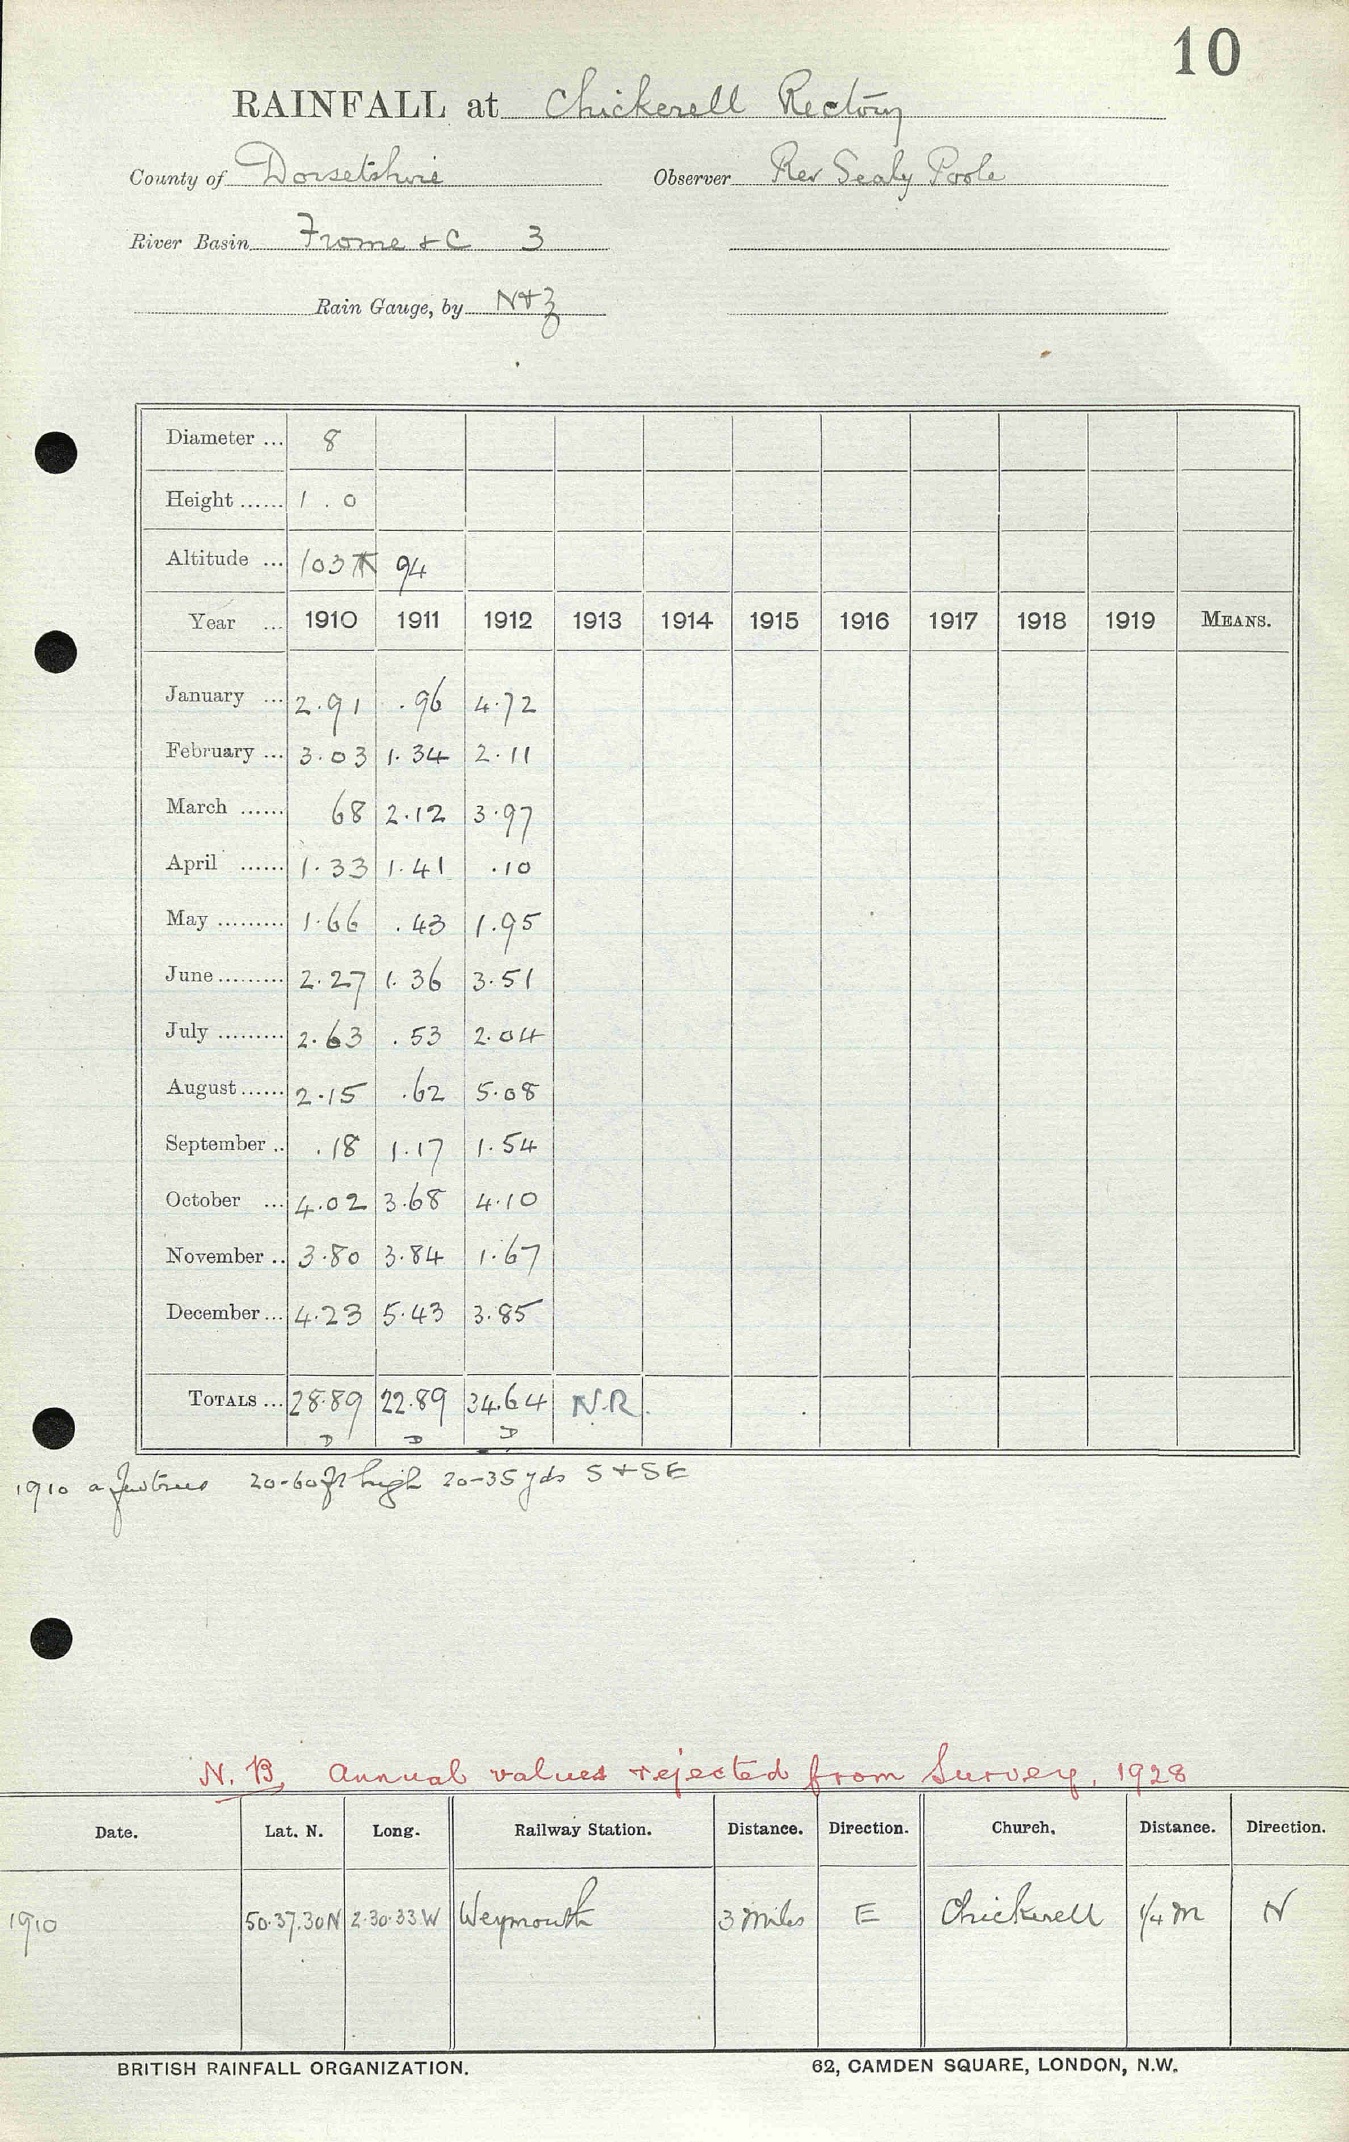 10
RAINFALL at Chickerell Rectory
County of Dorsetshire Observer Rev Sealy Poole
River Basin Frome & C 3
Rain Gauge, by N&Z
Diameter ... 8
Height ...... 1 . 0
Altitude ... 103 94
Year ... 1910 1911 1912 1913 1914 1915 1916 1917 1918 1919 MEANS.
January ... 2.91 .96 4.72
February ... 3.03 1.34 2.11
March ...... 68 2.12 3.97
April ...... 1.33 1.41 .10
May ......... 1.66 .43 1.95
June ......... 2.27 1.36 3.51
July ......... 2.63 .53 2.04
August ...... 2.15 .62 5.08
September .. .18 1.17 1.54
October ... 4.02 3.68 4.10
November .. 3.80 3.84 1.67
December ... 4.23 5.43 3.85
TOTALS ... 28.89 22.89 34.64 N.R.
D D D
1910 a few trees 20-60 ft high 20-35 yds S & SE
N.B. Annual values rejected from Survey, 1928
Date. Lat. N. Long. Railway Station. Distance. Direction. Church. Distance. Direction.
1910 50.37.30N 2.30.33.W Weymouth 3 miles E Chickerell 1/4 m N
BRITISH RAINFALL ORGANIZATION. 62, CAMDEN SQUARE, LONDON, N.W.